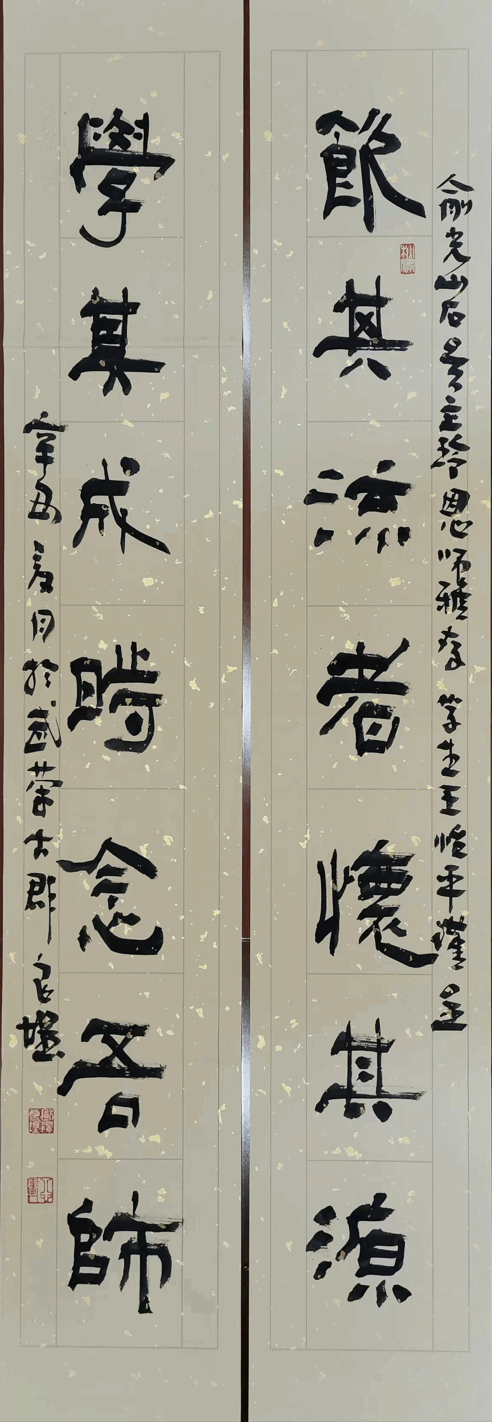 光山石主琴恩师雅存 学生王平謹呈
飲其流者懷其源
學其成時念吾師
辛丑夏月於武荣古郡良堪